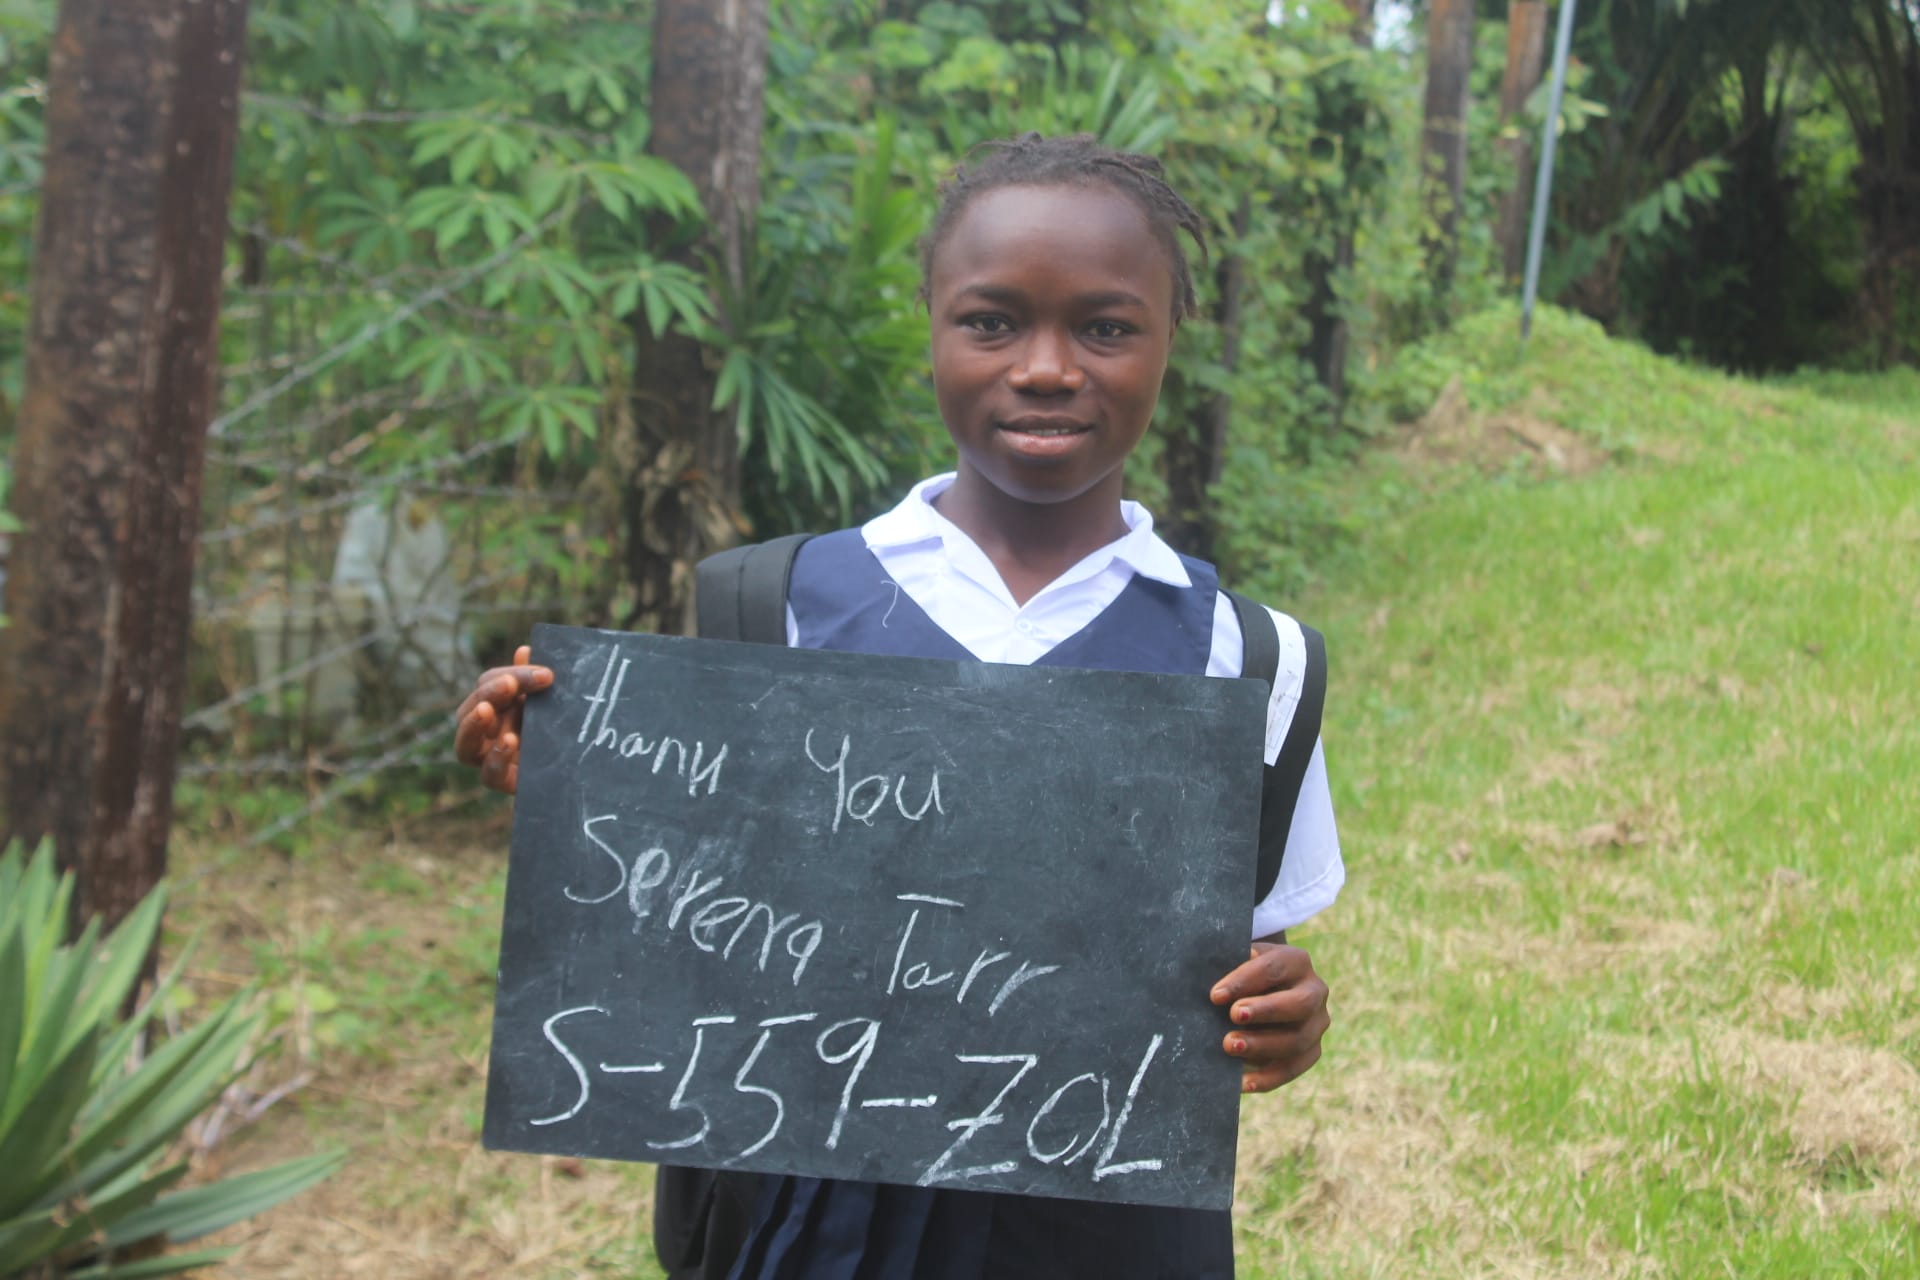 thank You
Serena Tarr
S-559-ZOL